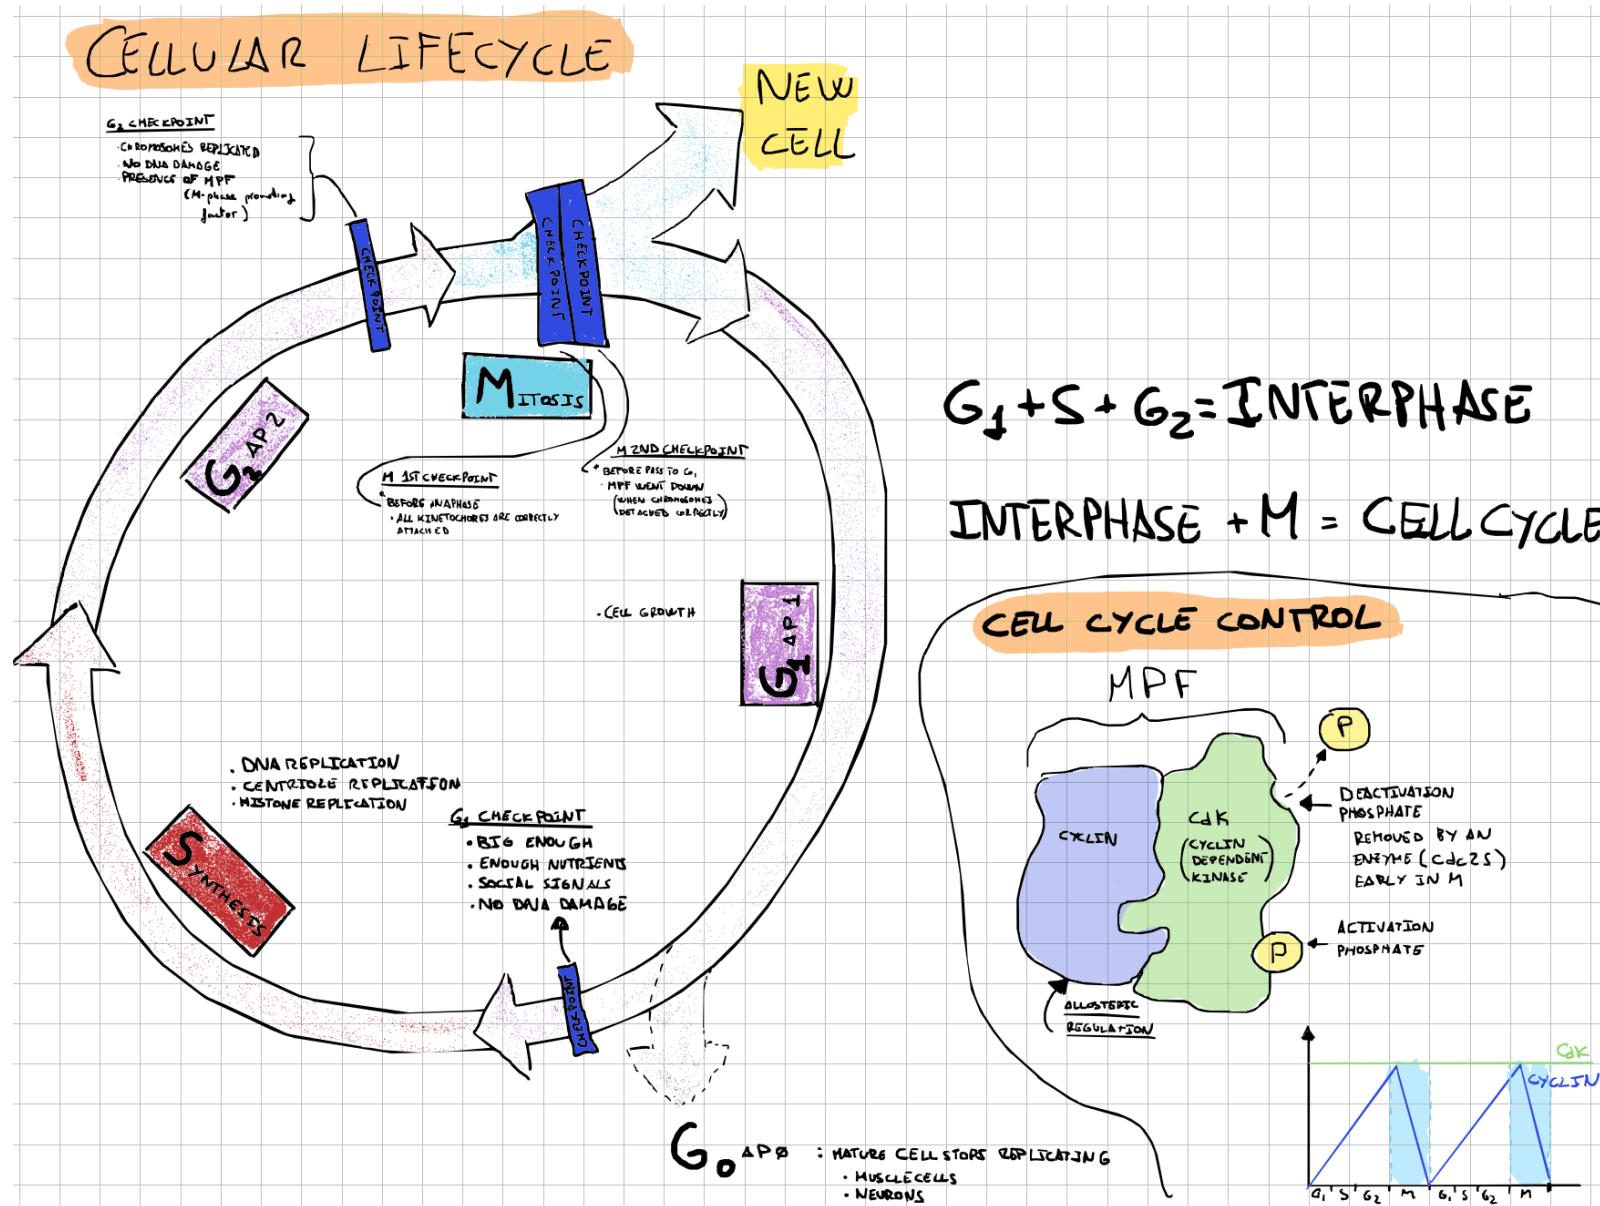 CELLULAR LIFECYCLE
NEW
CELL
G2 CHECKPOINT
· CHROMOSOMES REPLICATED
· NO DNA DAMAGE
· PRESENCE OF MPF
(M-phase promoting
factor)
CHECKPOINT
CHECKPOINT
CHECKPOINT
MITOSIS
G2 AP 2
M 1ST CHECKPOINT
* BEFORE ANAPHASE
· ALL KINETOCHORES ARE CORRECTLY
ATTACHED
M 2ND CHECKPOINT
* BEFORE PASS TO G1
· MPF WENT DOWN
(WHEN CHROMOSOMES
DETACHED CORRECTLY)
G1 + S + G2 = INTERPHASE
INTERPHASE + M = CELL CYCLE
· CELL GROWTH
G1 AP 1
· DNA REPLICATION
· CENTRIOLE REPLICATION
· HISTONE REPLICATION
SYNTHESIS
G1 CHECKPOINT
· BIG ENOUGH
· ENOUGH NUTRIENTS
· SOCIAL SIGNALS
· NO DNA DAMAGE
CHECKPOINT
G0 AP Ø : MATURE CELL STOPS REPLICATING
· MUSCLE CELLS
· NEURONS
CELL CYCLE CONTROL
MPF
P
CYCLIN
CdK
(CYCLIN
DEPENDENT
KINASE)
DEACTIVATION
PHOSPHATE
REMOVED BY AN
ENZYME (Cdc25)
EARLY IN M
P
ACTIVATION
PHOSPHATE
ALLOSTERIC
REGULATION
CdK
CYCLIN
G1 S G2 M G1 S G2 M